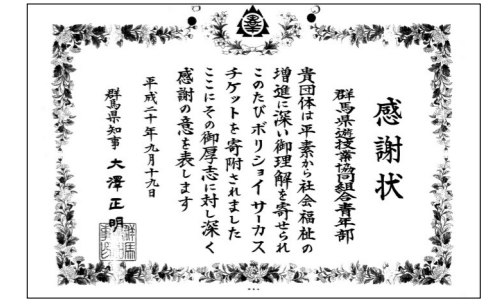 感謝状
群馬県遊技業協同組合青年部
貴団体は平素から社会福祉の
増進に深い御理解を寄せられ
このたびボリショイサーカス
チケットを寄附されました
ここにその御厚志に対し深く
感謝の意を表します
平成二十年九月十九日
群馬県知事 大澤正明